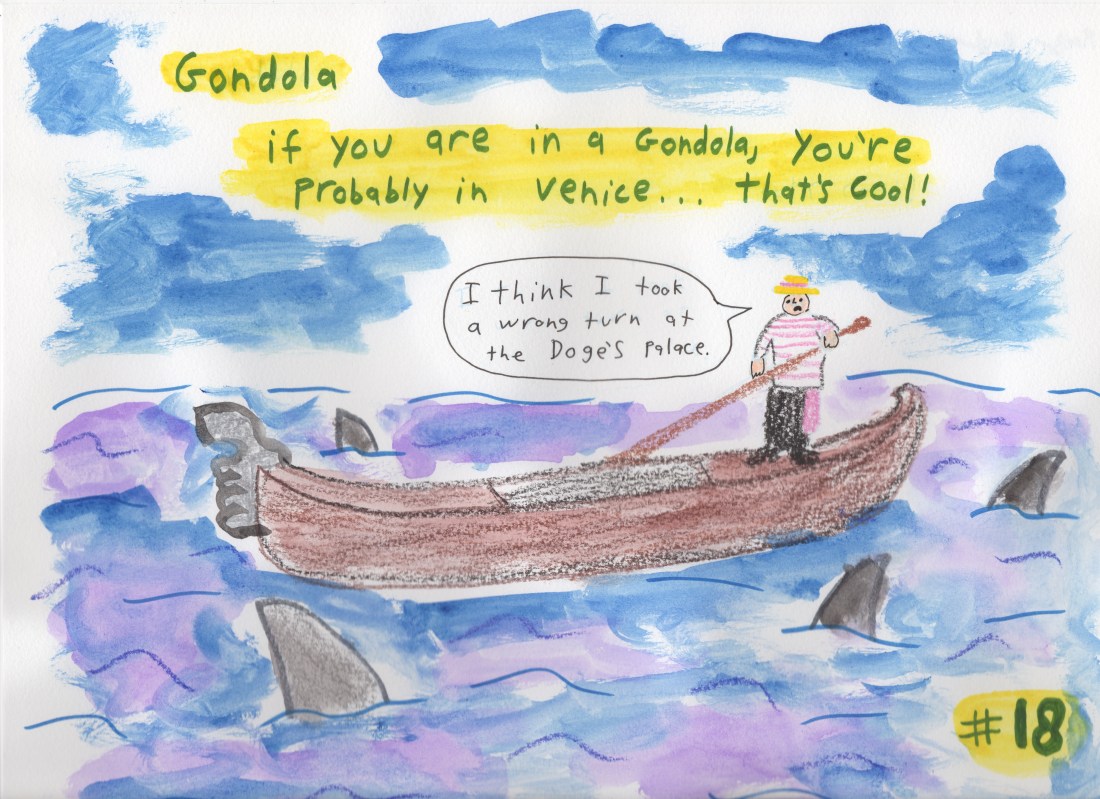 Gondola
if you are in a Gondola, you're
Probably in Venice... that's Cool!
I think I took
a wrong turn at
the Doge's Palace.
#18